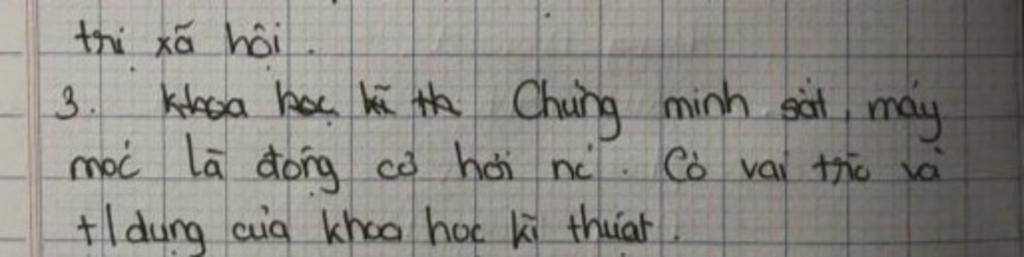 trị xã hội.
3. Khoa học kĩ th Chứng minh sắt, máy
móc là động cơ hơi nc. Có vai trò và
t/dụng của khoa học kĩ thuật.